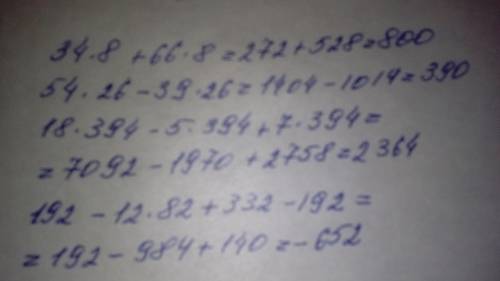 34·8 + 66·8 = 272 + 528 = 800
54·26 - 39·26 = 1404 - 1014 = 390
18·394 - 5·394 + 7·394 =
= 7092 - 1970 + 2758 = 2364
192 - 12·82 + 332 - 192 =
= 192 - 984 + 140 = -652